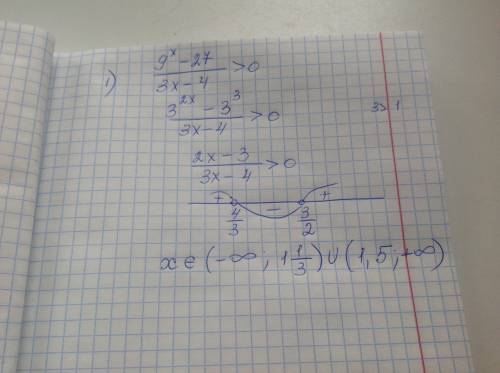 1) (9^x - 27)/(3x - 4) > 0
(3^{2x} - 3^3)/(3x - 4) > 0
3 > 1
(2x - 3)/(3x - 4) > 0
+ − +
4/3 3/2
x ∈ (-∞; 1 1/3) ∪ (1,5; +∞)